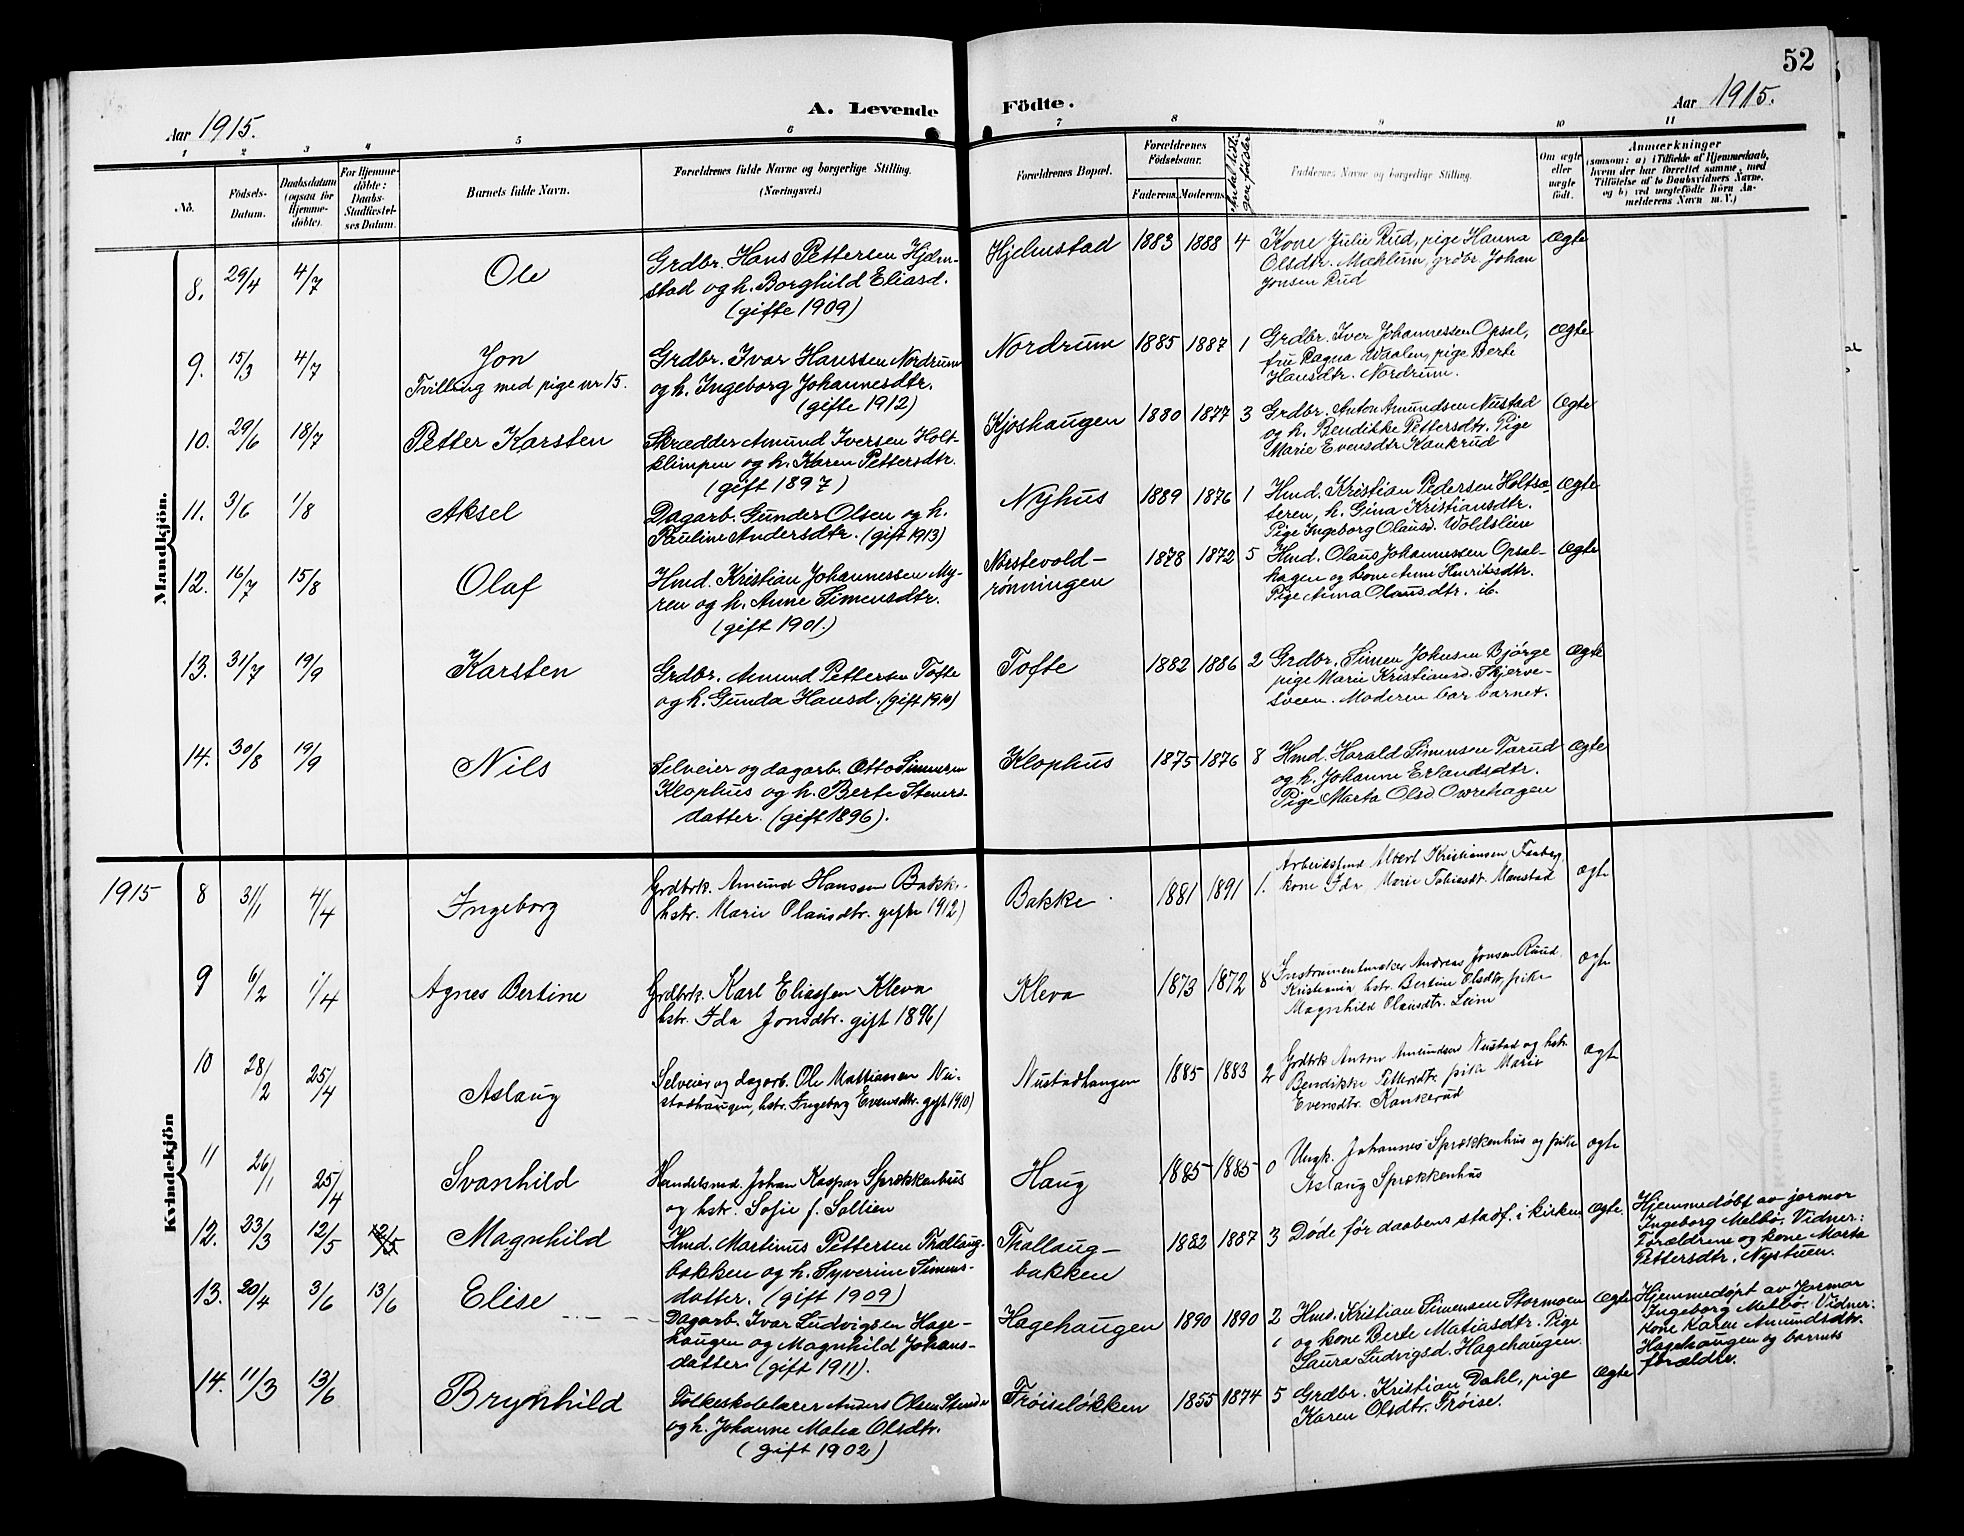 52
A. Levende Födte.
Aar 1915.
Aar 1915.
1 2 3 4 5 6 7 8 9 10 11
No.
Födsels-Datum.
Daabsdatum (ogsaa for Hjemmedöbte).
For Hjemmedöbte: Daabs-Stadfæstelses Datum.
Barnets fulde Navn.
Forældrenes fulde Navne og borgerlige Stilling. (Næringsvei.)
Forældrenes Bopæl.
Forældrenes Födselsaar.
Faderens. Moderens.
Antal tidligere fødsler
Faddernes Navne og borgerlige Stilling.
Om ægte eller uægte födt.
Anmærkninger
(saasom: a) i Tilfælde af Hjemmedaab, hvem der har forrettet samme, med Tilföielse af to Daabsvidners Navne, og b) ved uægtefödte Börn Anmelderens Navn m. V.)
Mandkjön.
8. 29/4 4/7 Ole
Grdbr. Hans Pettersen Hjelm-
stad og h. Borghild Eliasd.
(gifte 1909)
Hjelmstad 1883 1888 4
Kone Julie Rud, pige Hanna
Olsdtr. Mæhlum, grdbr. Johan
Jonsen Rud
Ægte
9. 15/3 4/7 Jon
Tvilling med pige nr 15.
Grdbr. Ivar Hanssen Nordrum
og h. Ingeborg Johannesdtr.
(gifte 1912)
Nordrum 1885 1887 1
Grdbr. Iver Johannessen Opsal,
fru Ragna Waalen, pige Berte
Hansdtr. Nordrum.
Ægte
10. 29/6 18/7 Petter Karsten
Skrædder Amund Iversen Holt-
klimpen og h. Karen Pettersdtr.
(gift 1897)
Kjoshaugen 1880 1877 3
Grdbr. Anton Amundsen Nustad
og h. Bendikke Pettersdtr. Pige
Marie Evensdtr Kankrud
Ægte
11. 3/6 1/8 Aksel
Dagarb. Gunder Olsen og h.
Pauline Andersdtr. (gift 1913)
Nyhus 1889 1876 1
Hmd. Kristian Pedersen Holtsæ-
teren, h. Gina Kristiansdtr.
Pige Ingeborg Olausd. Woldslien
Ægte
12. 16/7 15/8 Olaf
Hmd. Kristian Johannessen My-
ren og h. Anne Simensdtr.
(gift 1901.)
Norstevold-
rønningen 1878 1872 5
Hmd. Olaus Johannessen Opsal-
hagen og kone Anne Henriksdtr.
Pige Anna Olausdtr. ib.
Ægte
13. 31/7 19/9 Karsten
Grdbr. Amund Pettersen Tofte
og h. Gunda Hansd. (gift 1910)
Tofte 1882 1886 2
Grdbr. Simen Johnsen Bjørge
pige Marie Kristiansd. Skjerve-
sveen. Moderen bar barnet.
Ægte
14. 30/8 19/9 Nils
Selveier og dagarb. Otto Simensen
Klophus og h. Berte Steners-
datter. (gift 1896).
Klophus 1875 1876 8
Hmd. Harald Simensen Tarud
og h. Johanne Erlandsdtr.
Pige Marta Olsd Ovrehagen
Ægte
Kvindekjön
1915
8 31/1 4/4 Ingeborg
Grdbrk. Amund Hansen Bakke
hstr. Marie Olausdtr. gifte 1912)
Bakke 1881 1891 1.
Arbeidsfmd Albert Kristiansen Faaberg
kone Ida Marie Tobiasdt. Monstad
ægte
9 6/2 1/4 Agnes Bertine
Grdbrk. Karl Eliassen Kleva
hstr. Ida Jonsdtr. gift 1896)
Kleva 1873 1872 8
Instrumentmaker Andreas Jonsen Ruud
Kristiania hstr. Bertine Olsdtr, pike
Magnhild Olausdtr. Leine
ægte
10 28/2 25/4 Aslaug
Selveier og dagarb. Ole Mattiassen Nu-
stadhaugen, hstr. Ingeborg Evensdtr. gift 1910)
Nustadhaugen 1885 1883 2
Grdbrk Anton Amundsen Nustad og hstr.
Bendikke Pettersdtr pike Marie
Evensdtr. Kankerud
ægte
11 26/1 25/4 Svanhild
Handelsmd. Johan Kaspar Sprækkenhus
og hstr. Sofie f. Sollien
Haug 1885 1885 0
Ungk. Johannes Sprækkenhus og pike
Aslaug Sprækkenhus
ægte
12. 23/3 12/5 12/5 Magnhild
Hmd. Martinus Pettersen Thallaug-
bakken og h. Syverine Simens-
datter. (gift 1909)
Thallaug-
bakken 1882 1887 3
Døde før daabens stadf. i kirken
ægte.
Hjemmedøbt av jormor
Ingeborg Melbø. Vidner:
Forældrene og kone Marta
Pettersdtr, Nystuen.
13. 20/4 3/6 13/6 Elise
Dagarb. Ivar Ludvigsen Hage-
haugen og Magnhild Johans-
datter (gift 1911).
Hagehaugen 1890 1890 2
Hmd. Kristian Simensen Stormoen
og kone Berte Matiasdtr. Pige
Laura Ludvigsd. Hagehaugen.
Ægte
Hjemmedøpt av Jormor
Ingeborg Melbø. Vidner:
kone Karen Amundsdtr.
Hagehaugen og barnets
forældre.
14. 11/3 13/6 Brynhild
Folkeskolelærer Anders Olsen
og h. Johanne Matea Olsdtr.
(gift 1902)
Frøiseløkken 1855 1874 5
Grdbr. Kristian Dahl, pige
Karen Olsdtr. Frøise.
Ægte